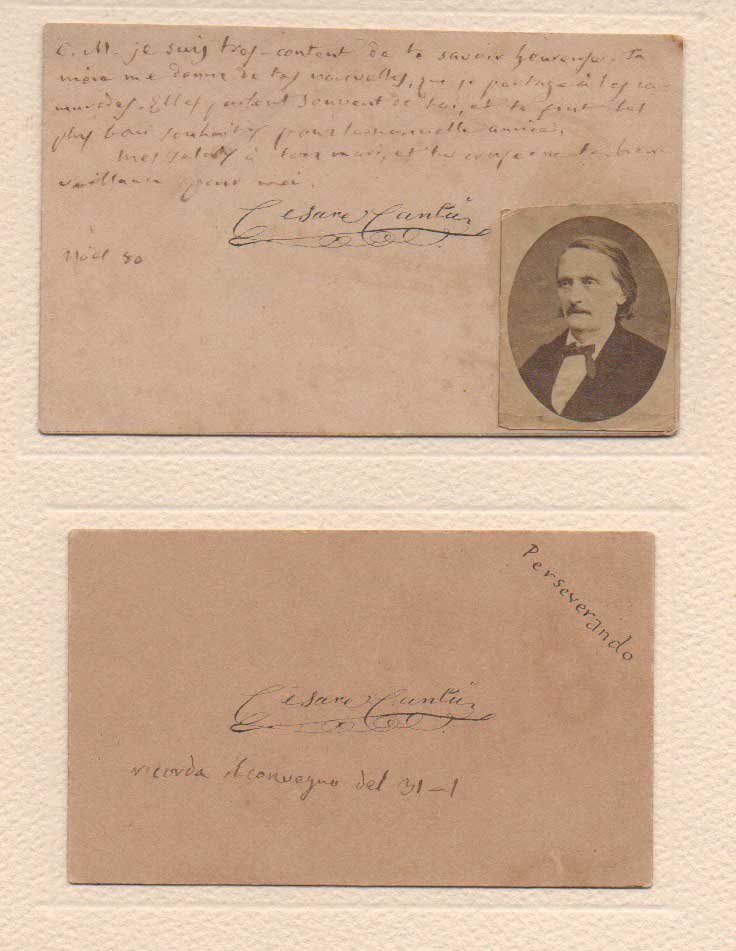 C. M. je suis tres-content de te savoir heureuse. Ta
mère me donne de tes nouvelles, que je partage à tes ca-
marades. Elles parlent souvent de toi, et te font les
plus bons souhaits pour la nouvelle année.
Mes saluts à ton mari, et tu conserve ta bien-
veillance pour moi.
Cesare Cantù
Noël 80
Perseverando
Cesare Cantù
ricorda il convegno del 31-1